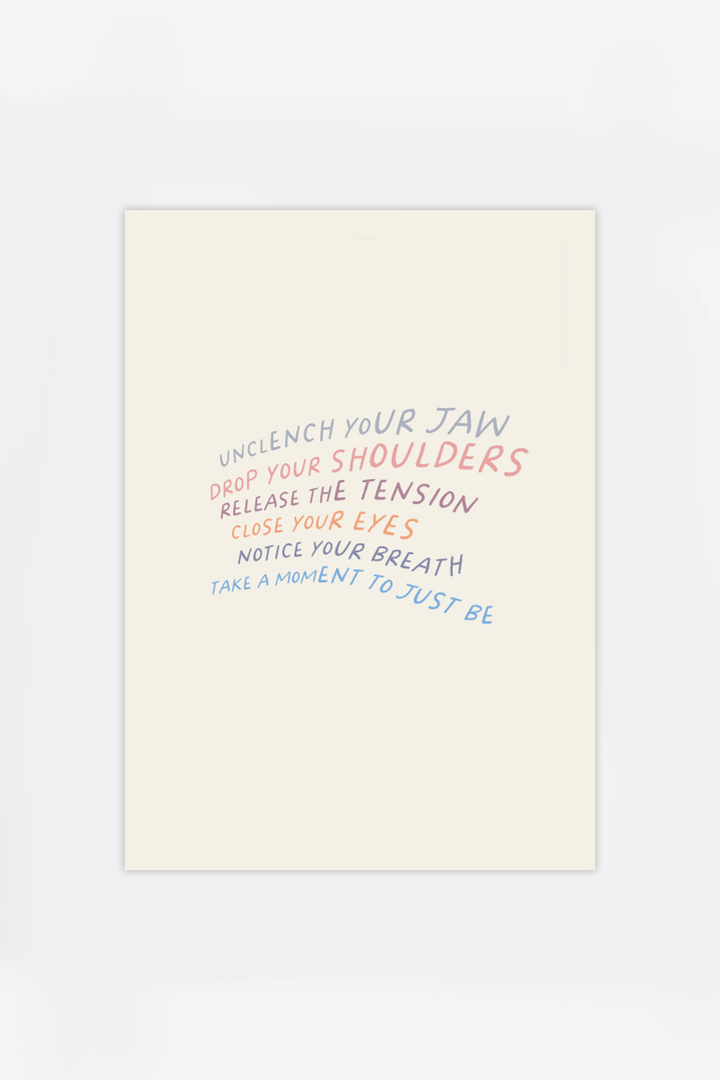 UNCLENCH YOUR JAW
DROP YOUR SHOULDERS
RELEASE THE TENSION
CLOSE YOUR EYES
NOTICE YOUR BREATH
TAKE A MOMENT TO JUST BE